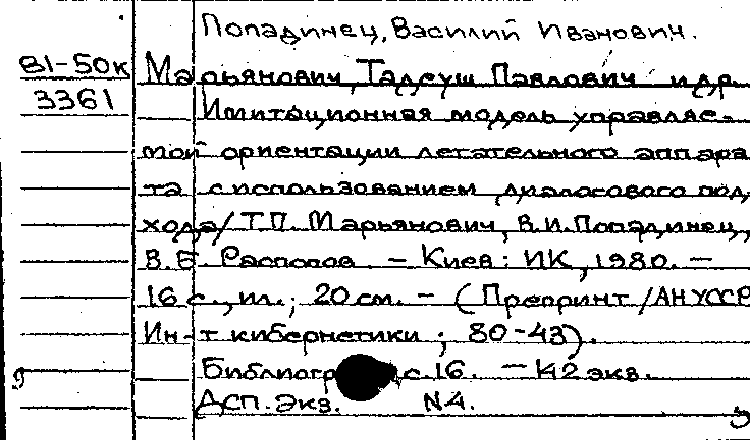 Попадинец, Василий Иванович.
В1-50к Марьянович, Тадеуш Павлович и др.
3361 Имитационная модель управляе-
мой ориентации летательного аппара
та с использованием диалогового под
хода / Т.П. Марьянович, В.И. Попадинец,
В.Б. Распопов. – Киев: ИК, 1980. –
16 с., ил.; 20 см. – (Препринт / АН УССР
Ин-т кибернетики; 80-43).
с. 16. – 142 экз.
ДСП. Экз. N4.